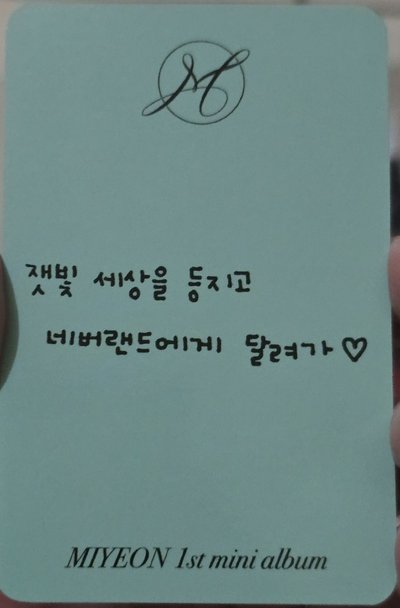 M
잿빛 세상을 등지고
네버랜드에게 달려가♡
MIYEON 1st mini album